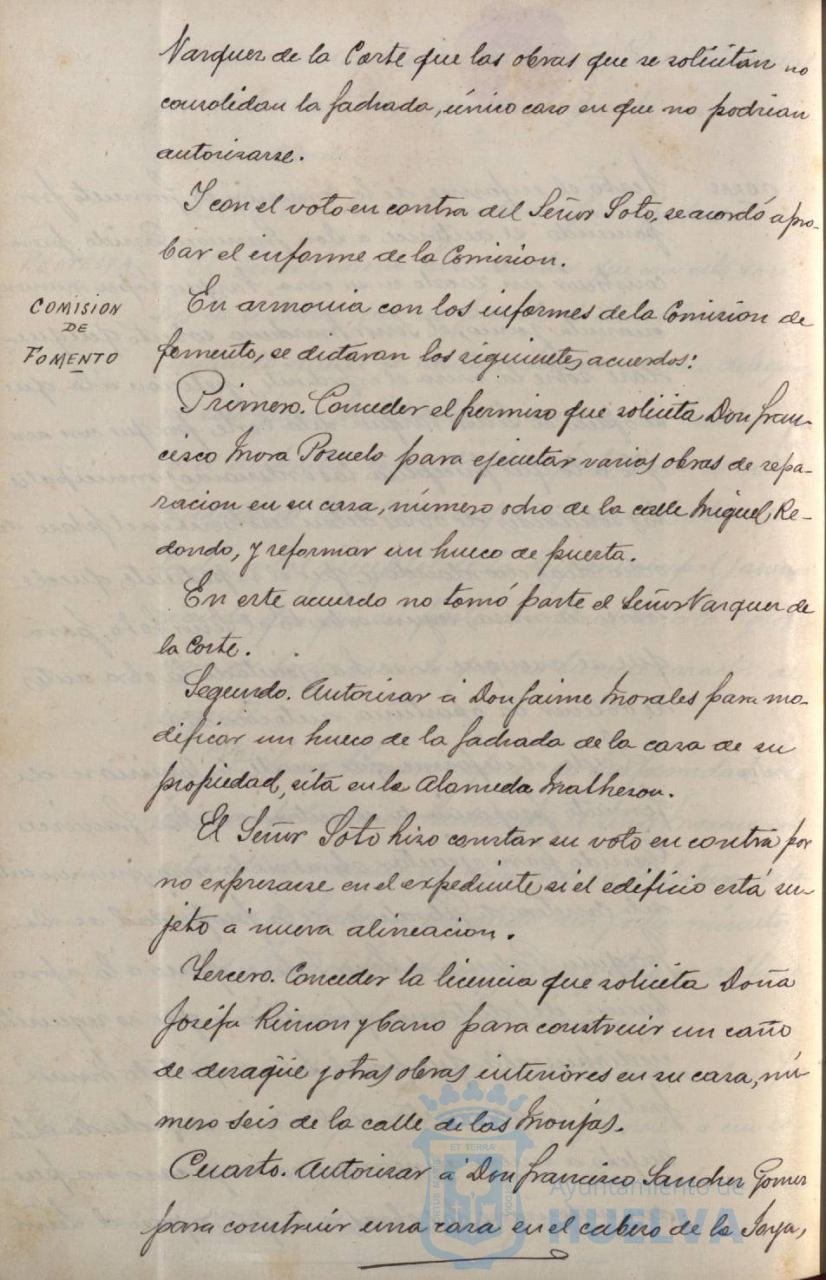 Vazquez de la Corte que las obras que se solicitan no
consolidan la fachada, único caso en que no podrian
autorizarse.
Y con el voto en contra del Señor Soto, se acordó apro-
bar el informe de la Comision.
COMISION
DE
FOMENTO
En armonia con los informes de la Comision de
fomento, se dictaran los siguientes acuerdos:
Primero. Conceder el permiso que solicita Don Fran-
cisco Mora Pozuelo para ejecutar varias obras de repa-
racion en su casa, número ocho de la calle Miguel Re-
dondo, y reformar un hueco de puerta.
En este acuerdo no tomó parte el Señor Vazquez de
la Corte.
Segundo. Autorizar á Don Jaime Morales para mo-
dificar un hueco de la fachada de la casa de su
propiedad, sita en la Alameda Matheson.
El Señor Soto hizo constar su voto en contra por
no expresarse en el expediente si el edificio está su-
jeto á nueva alineacion.
Tercero. Conceder la licencia que solicita Doña
Joséfa Rincon y Cano para construir un caño
de desagüe y otras obras interiores en su casa, nú-
mero seis de la calle de las Monjas.
Cuarto. Autorizar á Don Francisco Sanchez Gomez
para construir una casa en el cabezo de la Joya,
ET TERRÆ
Ayuntamiento de
HUELVA